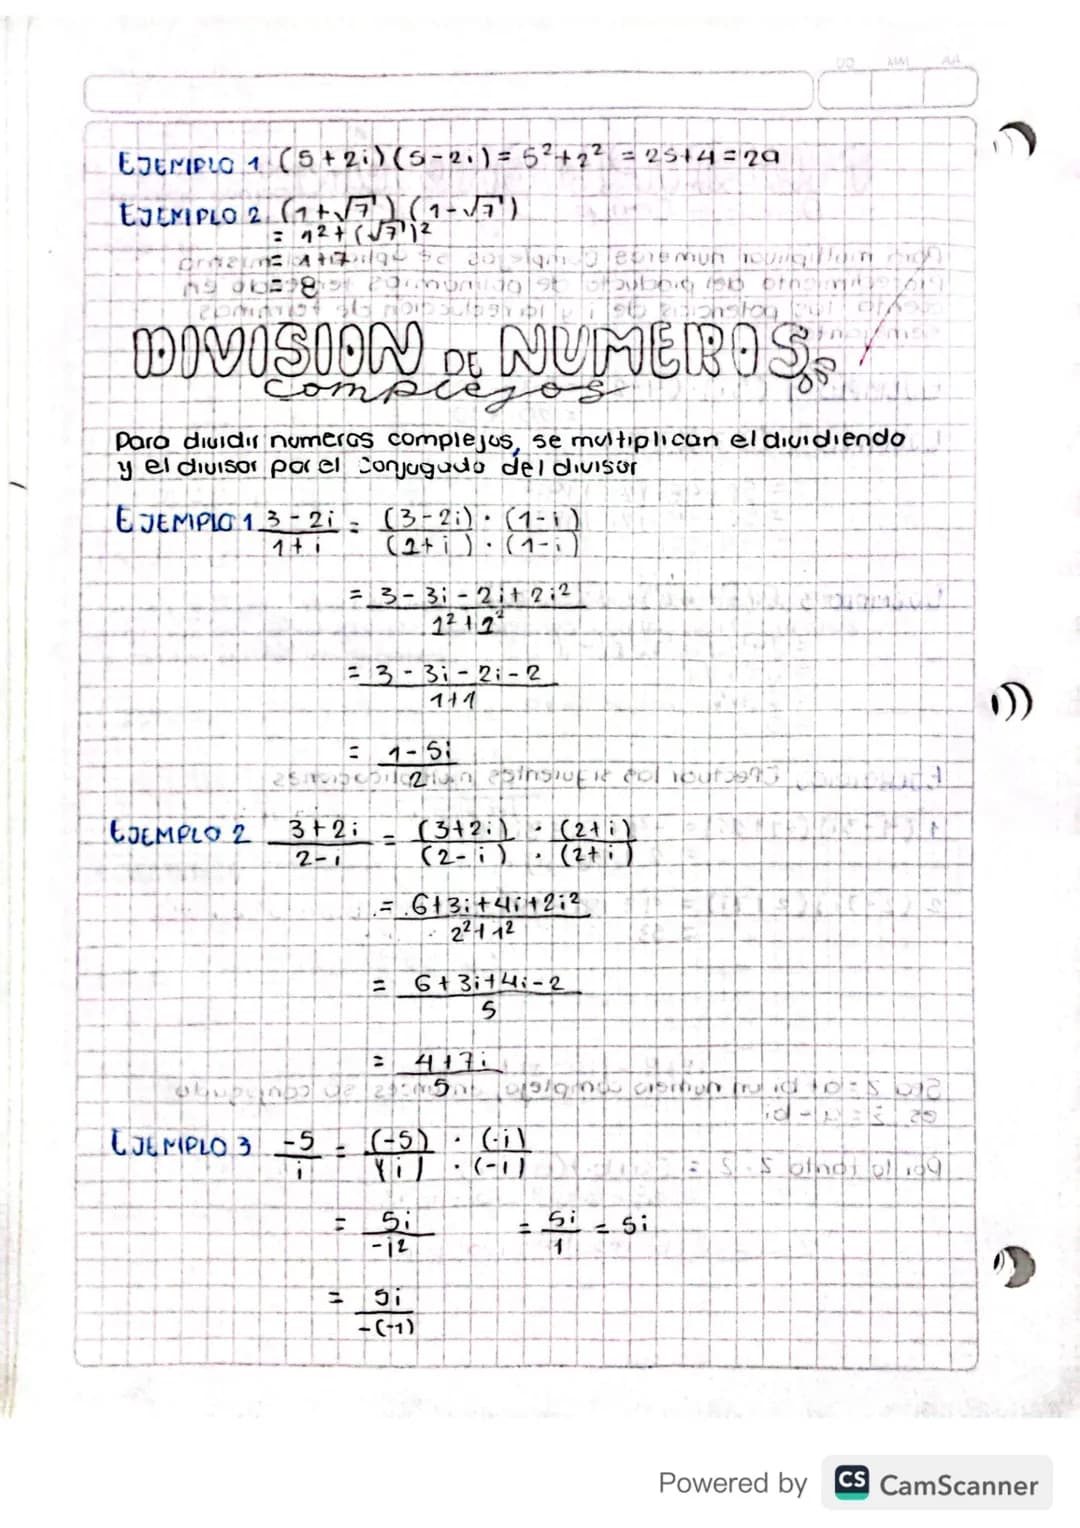 DD MM AA
EJEMPLO 1 (5+2i)(5-2i) = 5²+2² = 25+4=29
EJEMPLO 2 (1+√7)(1-√7)
= 1²+(√7)²
= 1+7
= 8
DIVISION DE NUMEROS
complejos
Para dividir numeros complejos, se multiplican el dividendo
y el divisor por el conjugado del divisor
EJEMPLO 1 3-2i = (3-2i) · (1-i)
1+i (1+i) · (1-i)
= 3-3i-2i+2i²
1²+1²
= 3-3i-2i-2
1+1
= 1-5i
2
EJEMPLO 2 3+2i = (3+2i) · (2+i)
2-i (2-i) · (2+i)
= 6+3i+4i+2i²
2²+1²
= 6+3i+4i-2
5
= 4+7i
5
EJEMPLO 3 -5 = (-5) · (-i)
i (i) · (-i)
= 5i = 5i = 5i
-i² 1
= 5i
-(-1)
Powered by CS CamScanner